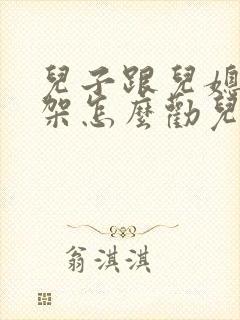 兒子跟兒媳
架怎麼勸兒
翁淇淇